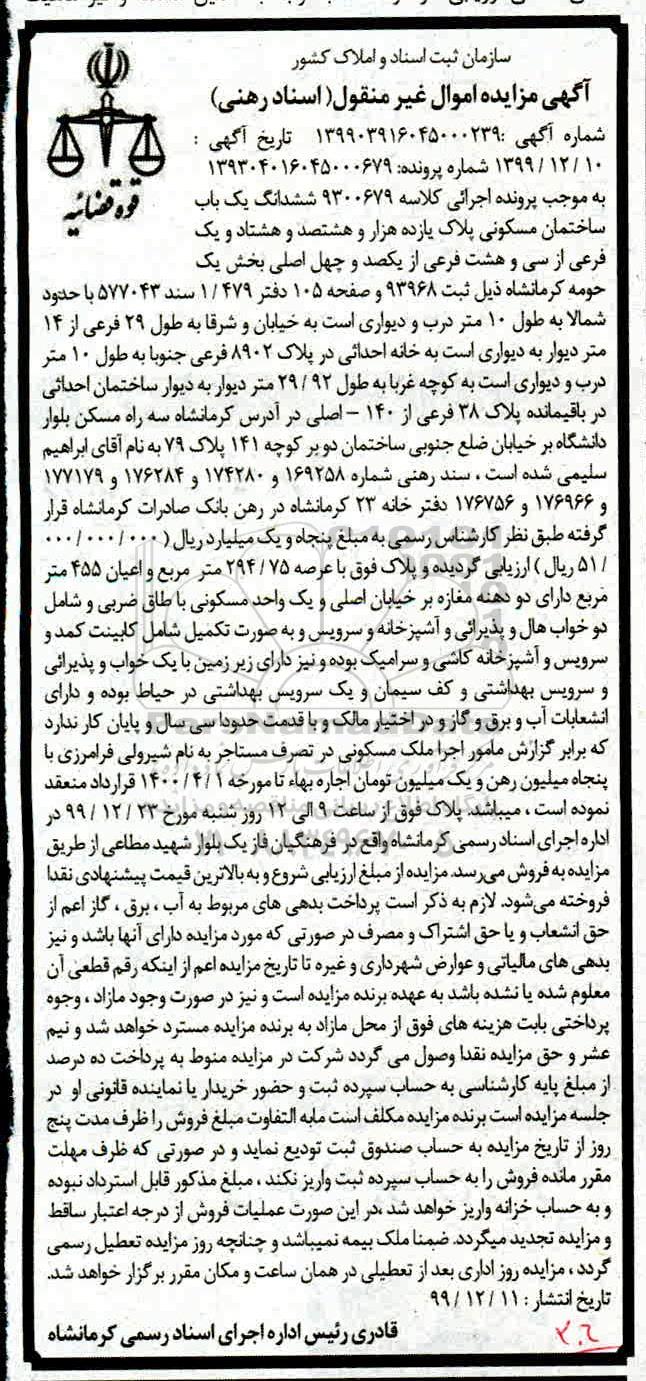 سازمان ثبت اسناد و املاک کشور
آگهی مزایده اموال غیر منقول( اسناد رهنی)
قوه قضائیه
شماره آگهی :۱۳۹۹۰۳۹۱۶۰۴۵۰۰۰۲۳۹ تاریخ آگهی :
۱۳۹۹/۱۲/۱۰ شماره پرونده: ۱۳۹۳۰۴۰۱۶۰۴۵۰۰۰۶۷۹
به موجب پرونده اجرائی کلاسه ۹۳۰۰۶۷۹ ششدانگ یک باب
ساختمان مسکونی پلاک یازده هزار و هشتصد و هشتاد و یک
فرعی از سی و هشت فرعی از یکصد و چهل اصلی بخش یک
حومه کرمانشاه ذیل ثبت ۹۳۹۶۸ و صفحه ۱۰۵ دفتر ۱/۴۷۹ سند ۵۷۷۰۴۳ با حدود
شمالا به طول ۱۰ متر درب و دیواری است به خیابان و شرقا به طول ۲۹ فرعی از ۱۴
متر دیوار به دیواری است به خانه احداثی در پلاک ۸۹۰۲ فرعی جنوبا به طول ۱۰ متر
درب و دیواری است به کوچه غربا به طول ۲۹/۹۲ متر دیوار به دیوار ساختمان احداثی
در باقیمانده پلاک ۳۸ فرعی از ۱۴۰ – اصلی در آدرس کرمانشاه سه راه مسکن بلوار
دانشگاه بر خیابان ضلع جنوبی ساختمان دو بر کوچه ۱۴۱ پلاک ۷۹ به نام آقای ابراهیم
سلیمی شده است ، سند رهنی شماره ۱۶۹۲۵۸ و ۱۷۴۲۸۰ و ۱۷۶۲۸۴ و ۱۷۷۱۷۹
و ۱۷۶۹۶۶ و ۱۷۶۷۵۶ دفتر خانه ۲۳ کرمانشاه در رهن بانک صادرات کرمانشاه قرار
گرفته طبق نظر کارشناس رسمی به مبلغ پنجاه و یک میلیارد ریال ( ۰۰۰/۰۰۰/۰۰۰
/۵۱ ریال ) ارزیابی گردیده و پلاک فوق با عرصه ۲۹۴/۷۵ متر مربع و اعیان ۴۵۵ متر
مربع دارای دو دهنه مغازه بر خیابان اصلی و یک واحد مسکونی با طاق ضربی و شامل
دو خواب هال و پذیرائی و آشپزخانه و سرویس و به صورت تکمیل شامل کابینت کمد و
سرویس و آشپزخانه کاشی و سرامیک بوده و نیز دارای زیر زمین با یک خواب و پذیرائی
و سرویس بهداشتی و کف سیمان و یک سرویس بهداشتی در حیاط بوده و دارای
انشعابات آب و برق و گاز و در اختیار مالک و با قدمت حدودا سی سال و پایان کار ندارد
که برابر گزارش مامور اجرا ملک مسکونی در تصرف مستاجر به نام شیرولی فرامرزی با
پنجاه میلیون رهن و یک میلیون تومان اجاره بهاء تا مورخه ۱۴۰۰/۴/۱ قرارداد منعقد
نموده است ، میباشد. پلاک فوق از ساعت ۹ الی ۱۲ روز شنبه مورخ ۹۹/۱۲/۲۳ در
اداره اجرای اسناد رسمی کرمانشاه واقع در فرهنگیان فاز یک بلوار شهید مطاعی از طریق
مزایده به فروش می‌رسد. مزایده از مبلغ ارزیابی شروع و به بالاترین قیمت پیشنهادی نقدا
فروخته می‌شود. لازم به ذکر است پرداخت بدهی های مربوط به آب ، برق ، گاز اعم از
حق انشعاب و یا حق اشتراک و مصرف در صورتی که مورد مزایده دارای آنها باشد و نیز
بدهی های مالیاتی و عوارض شهرداری و غیره تا تاریخ مزایده اعم از اینکه رقم قطعی آن
معلوم شده یا نشده باشد به عهده برنده مزایده است و نیز در صورت وجود مازاد ، وجوه
پرداختی بابت هزینه های فوق از محل مازاد به برنده مزایده مسترد خواهد شد و نیم
عشر و حق مزایده نقدا وصول می گردد شرکت در مزایده منوط به پرداخت ده درصد
از مبلغ پایه کارشناسی به حساب سپرده ثبت و حضور خریدار یا نماینده قانونی او در
جلسه مزایده است برنده مزایده مکلف است مابه التفاوت مبلغ فروش را ظرف مدت پنج
روز از تاریخ مزایده به حساب صندوق ثبت تودیع نماید و در صورتی که ظرف مهلت
مقرر مانده فروش را به حساب سپرده ثبت واریز نکند ، مبلغ مذکور قابل استرداد نبوده
و به حساب خزانه واریز خواهد شد ،در این صورت عملیات فروش از درجه اعتبار ساقط
و مزایده تجدید میگردد. ضمنا ملک بیمه نمیباشد و چنانچه روز مزایده تعطیل رسمی
گردد ، مزایده روز اداری بعد از تعطیلی در همان ساعت و مکان مقرر برگزار خواهد شد.
تاریخ انتشار : ۹۹/۱۲/۱۱
قادری رئیس اداره اجرای اسناد رسمی کرمانشاه